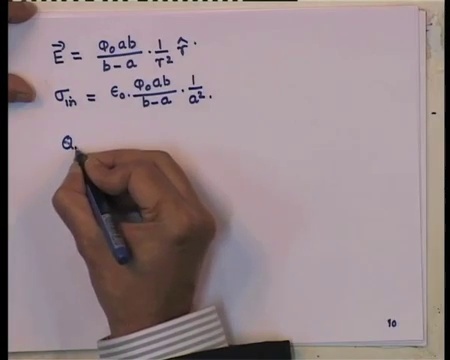 E⃗ = φ₀ab/(b-a) · 1/r² r̂.
σin = ε₀. φ₀ab/(b-a) · 1/a².
Q.
10